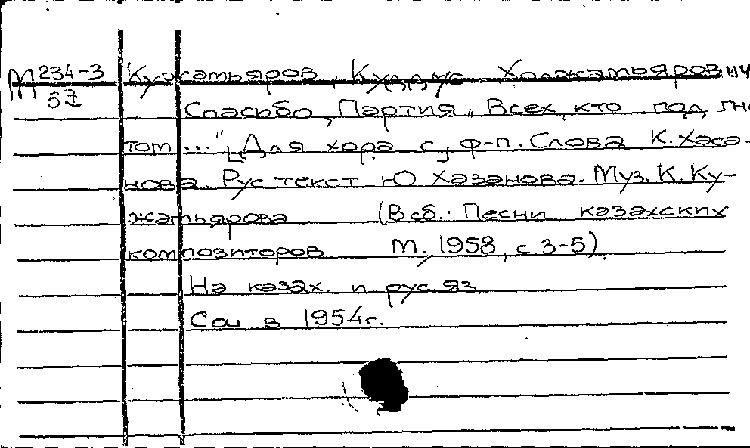 М 234-3 Кужамьяров, Куддус Ходжамьярович
57 Спасибо, Партия „Всех, кто под гне-
том ..." [Для хора с] ф-п. Слова К. Хаса-
нова. Рус текст Ю Хазанова. Муз. К. Ку-
жамьярова (В сб.: Песни казахских
композиторов М., 1958, с 3-5)
На казах. и рус яз
Соч в 1954г.